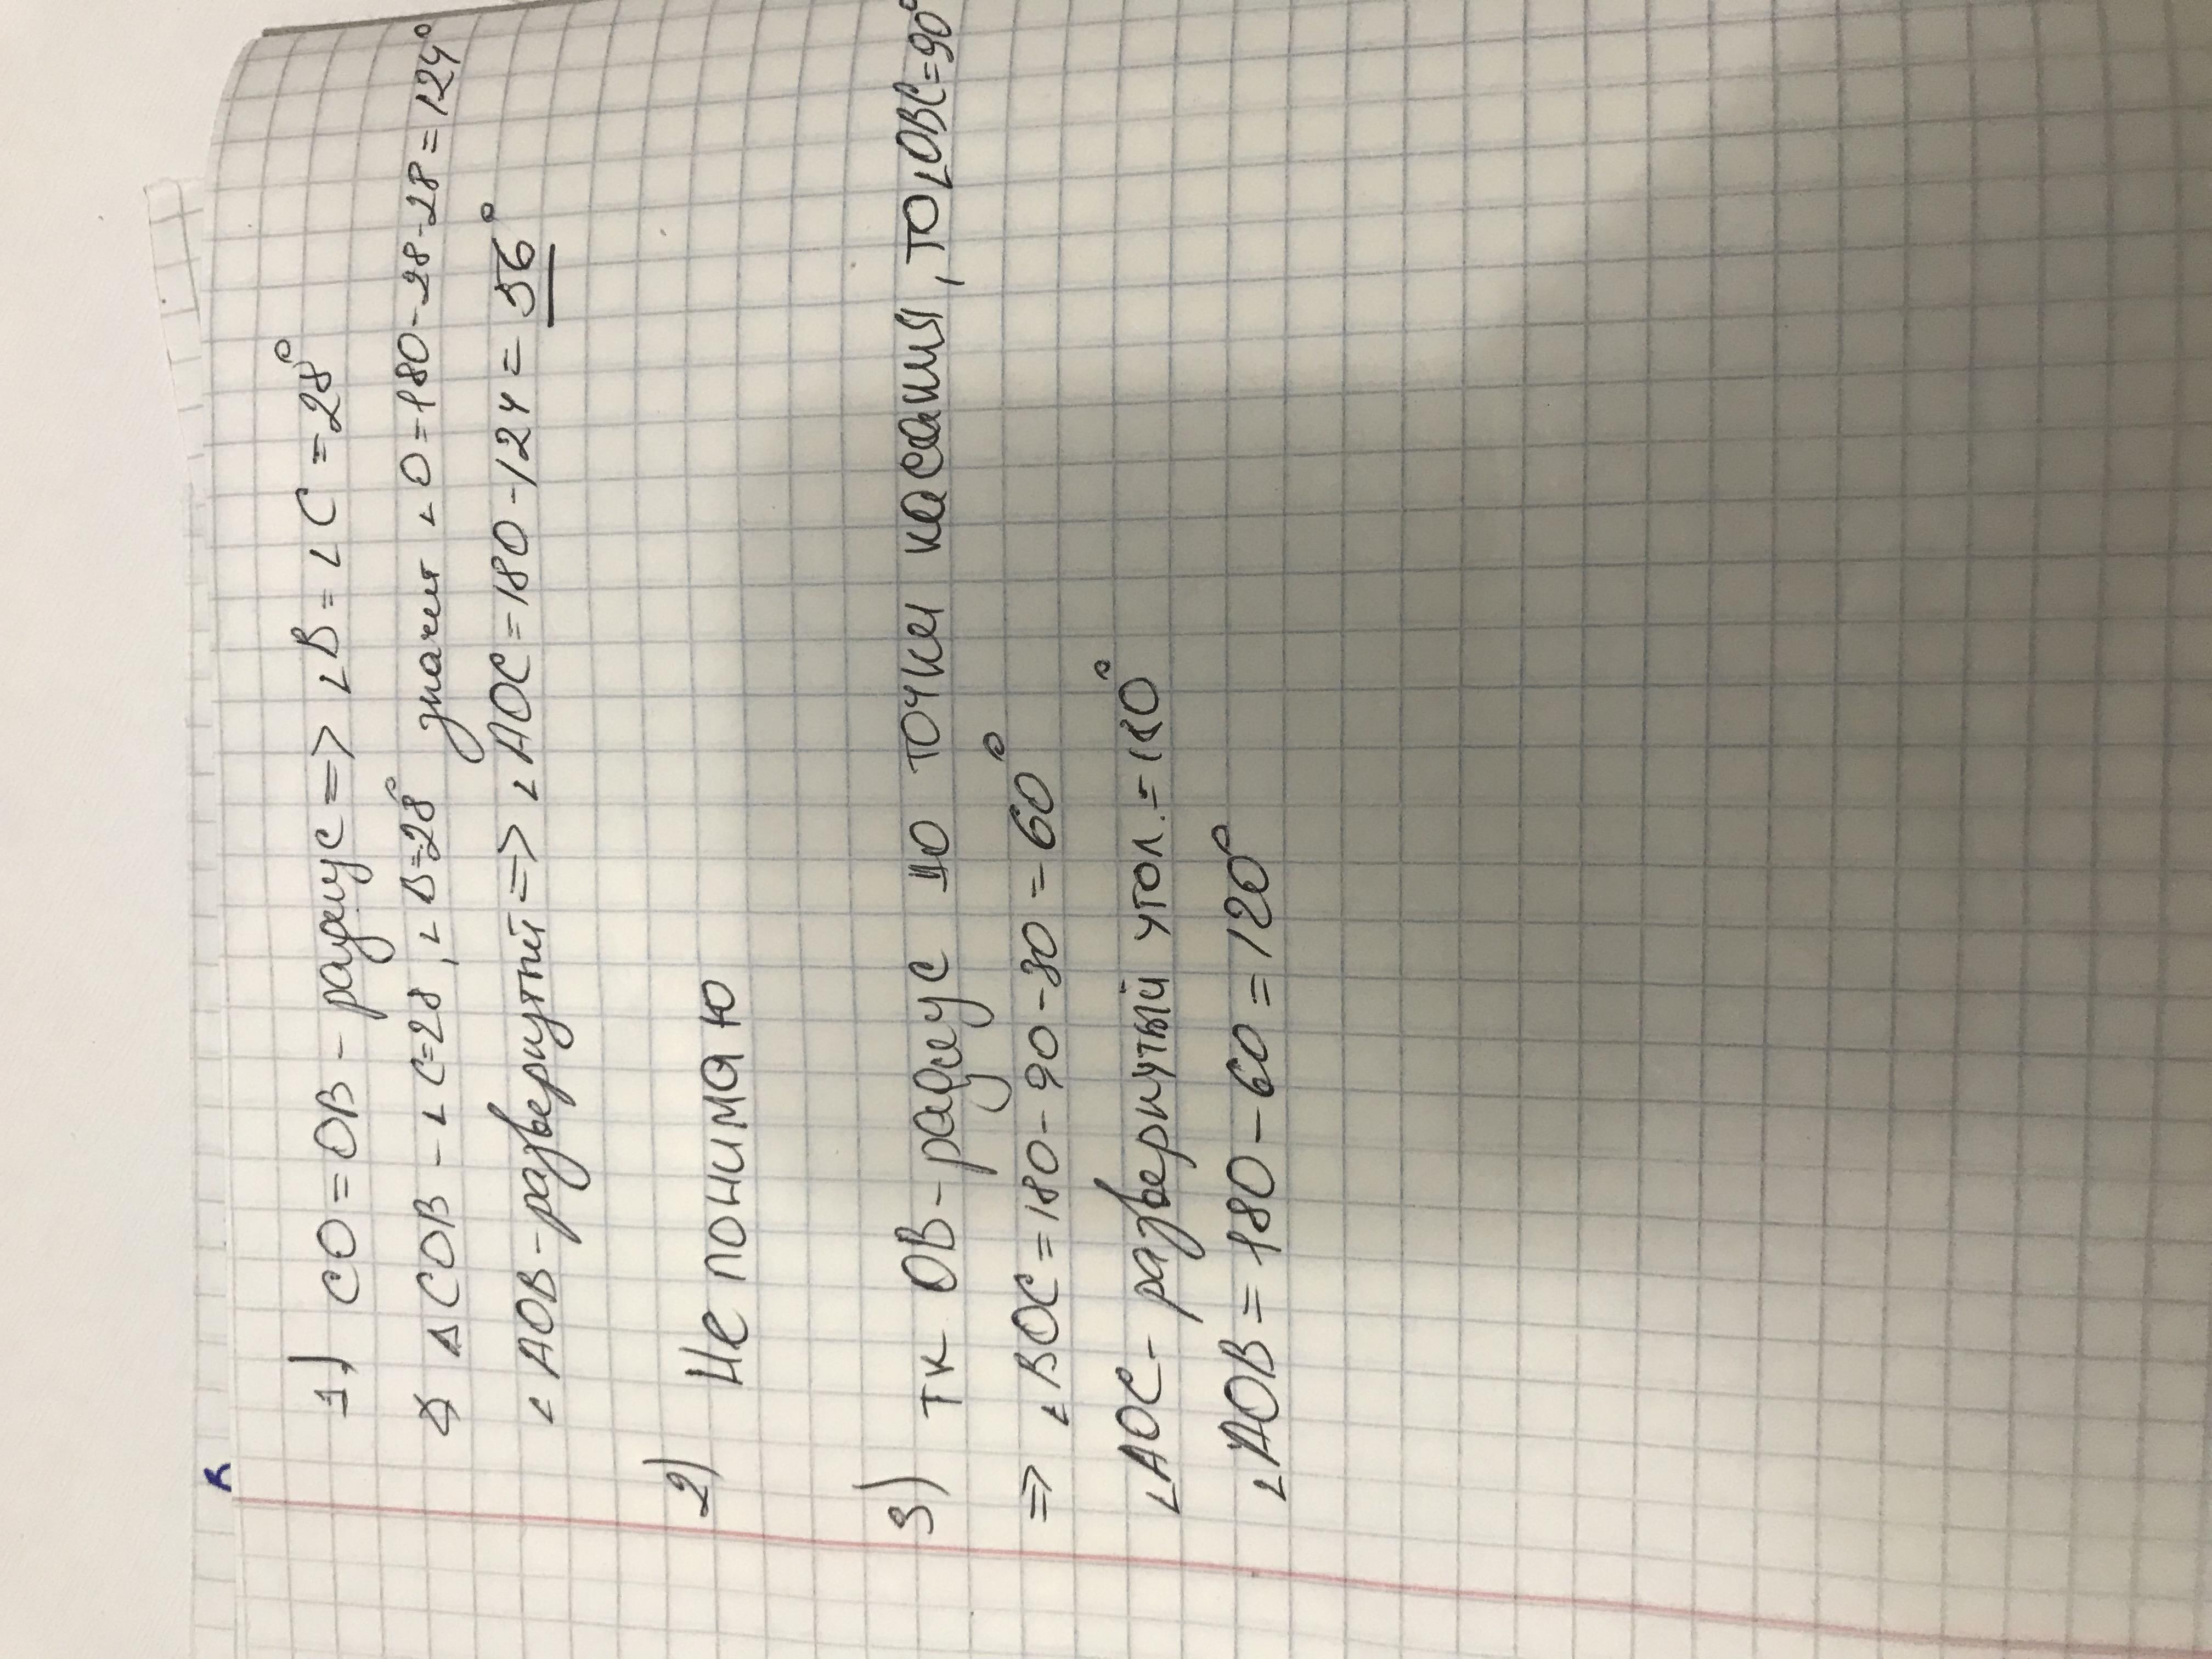 1) CO=OB - радиус => ∠B=∠C=28°
∆COB - ∠C=28, ∠B=28° значит ∠O=180-28-28=124°
∠AOB-развернутый => ∠AOC=180-124=56°
2) Не понимаю
3) тк OB-радиус до точки касания, то ∠OBC=90°
=> ∠BOC=180-90-30=60°
∠AOC- развернутый угол.=180°
∠AOB=180-60=120°